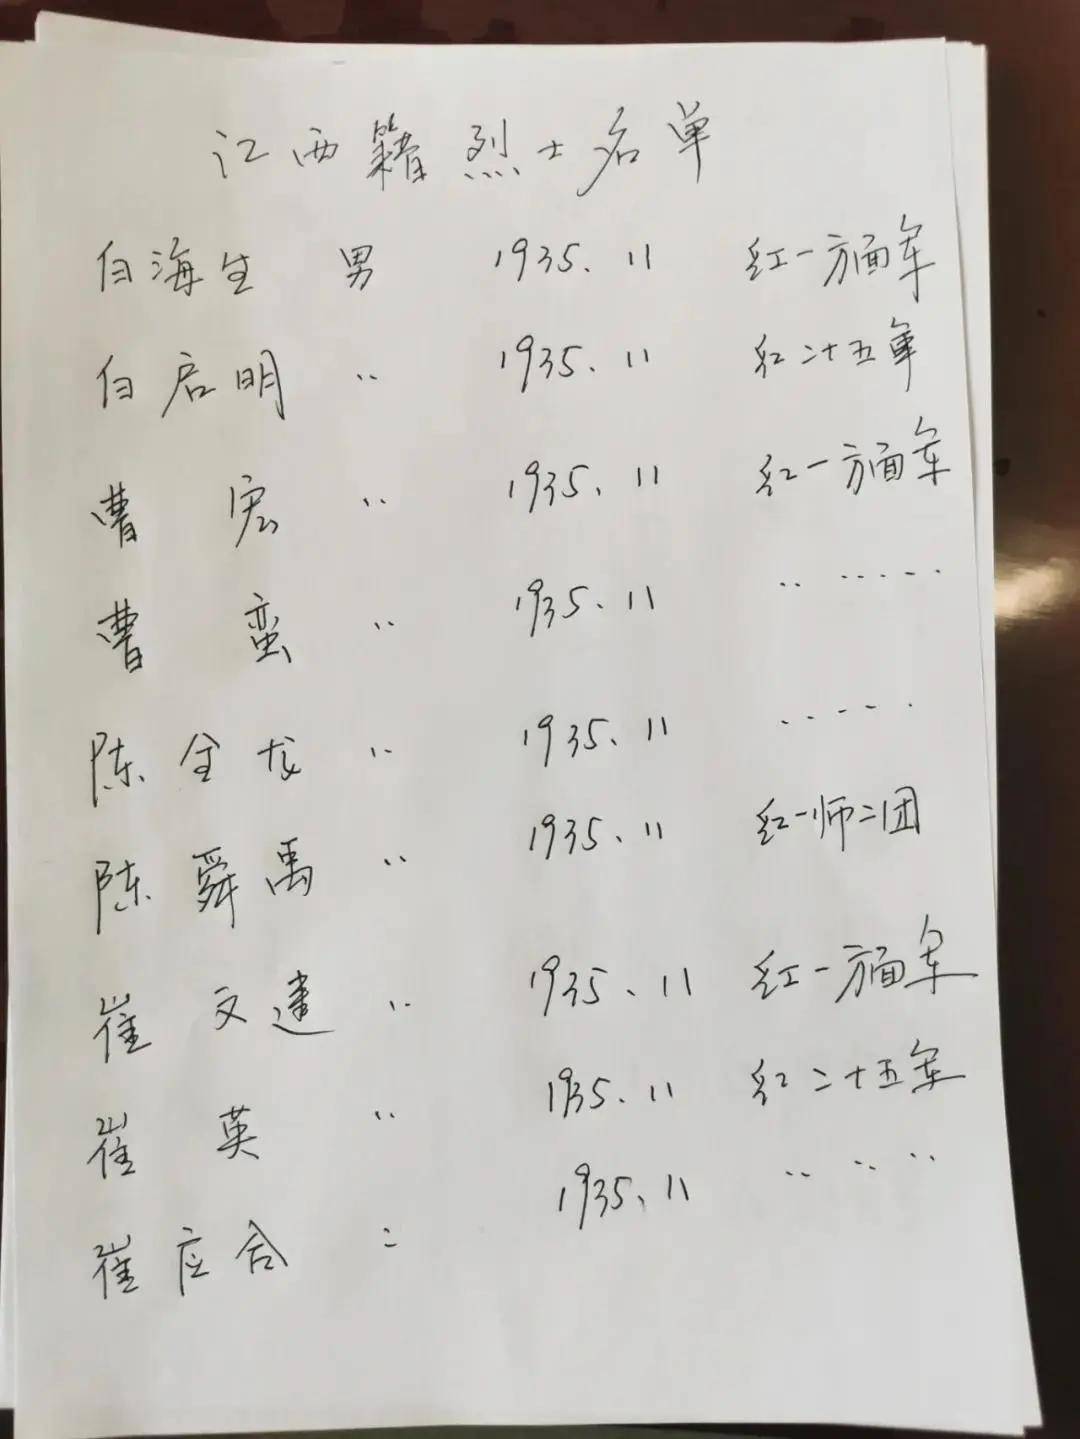 江西籍烈士名单
白海生 男 1935.11 红一方面军
白启明 〃 1935.11 红二十五军
曹宏 〃 1935.11 红一方面军
曹蛮 〃 1935.11 〃〃〃〃
陈全龙 〃 1935.11 〃〃〃
陈舜禹 〃 1935.11 红一师二团
崔文建 〃 1935.11 红一方面军
崔英 〃 1935.11 红二十五军
崔应合 〃 1935.11 〃〃〃